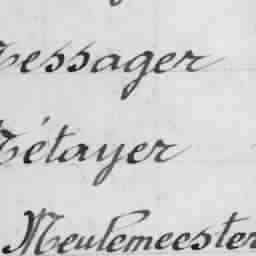 Messager
Métayer
Meulemeester